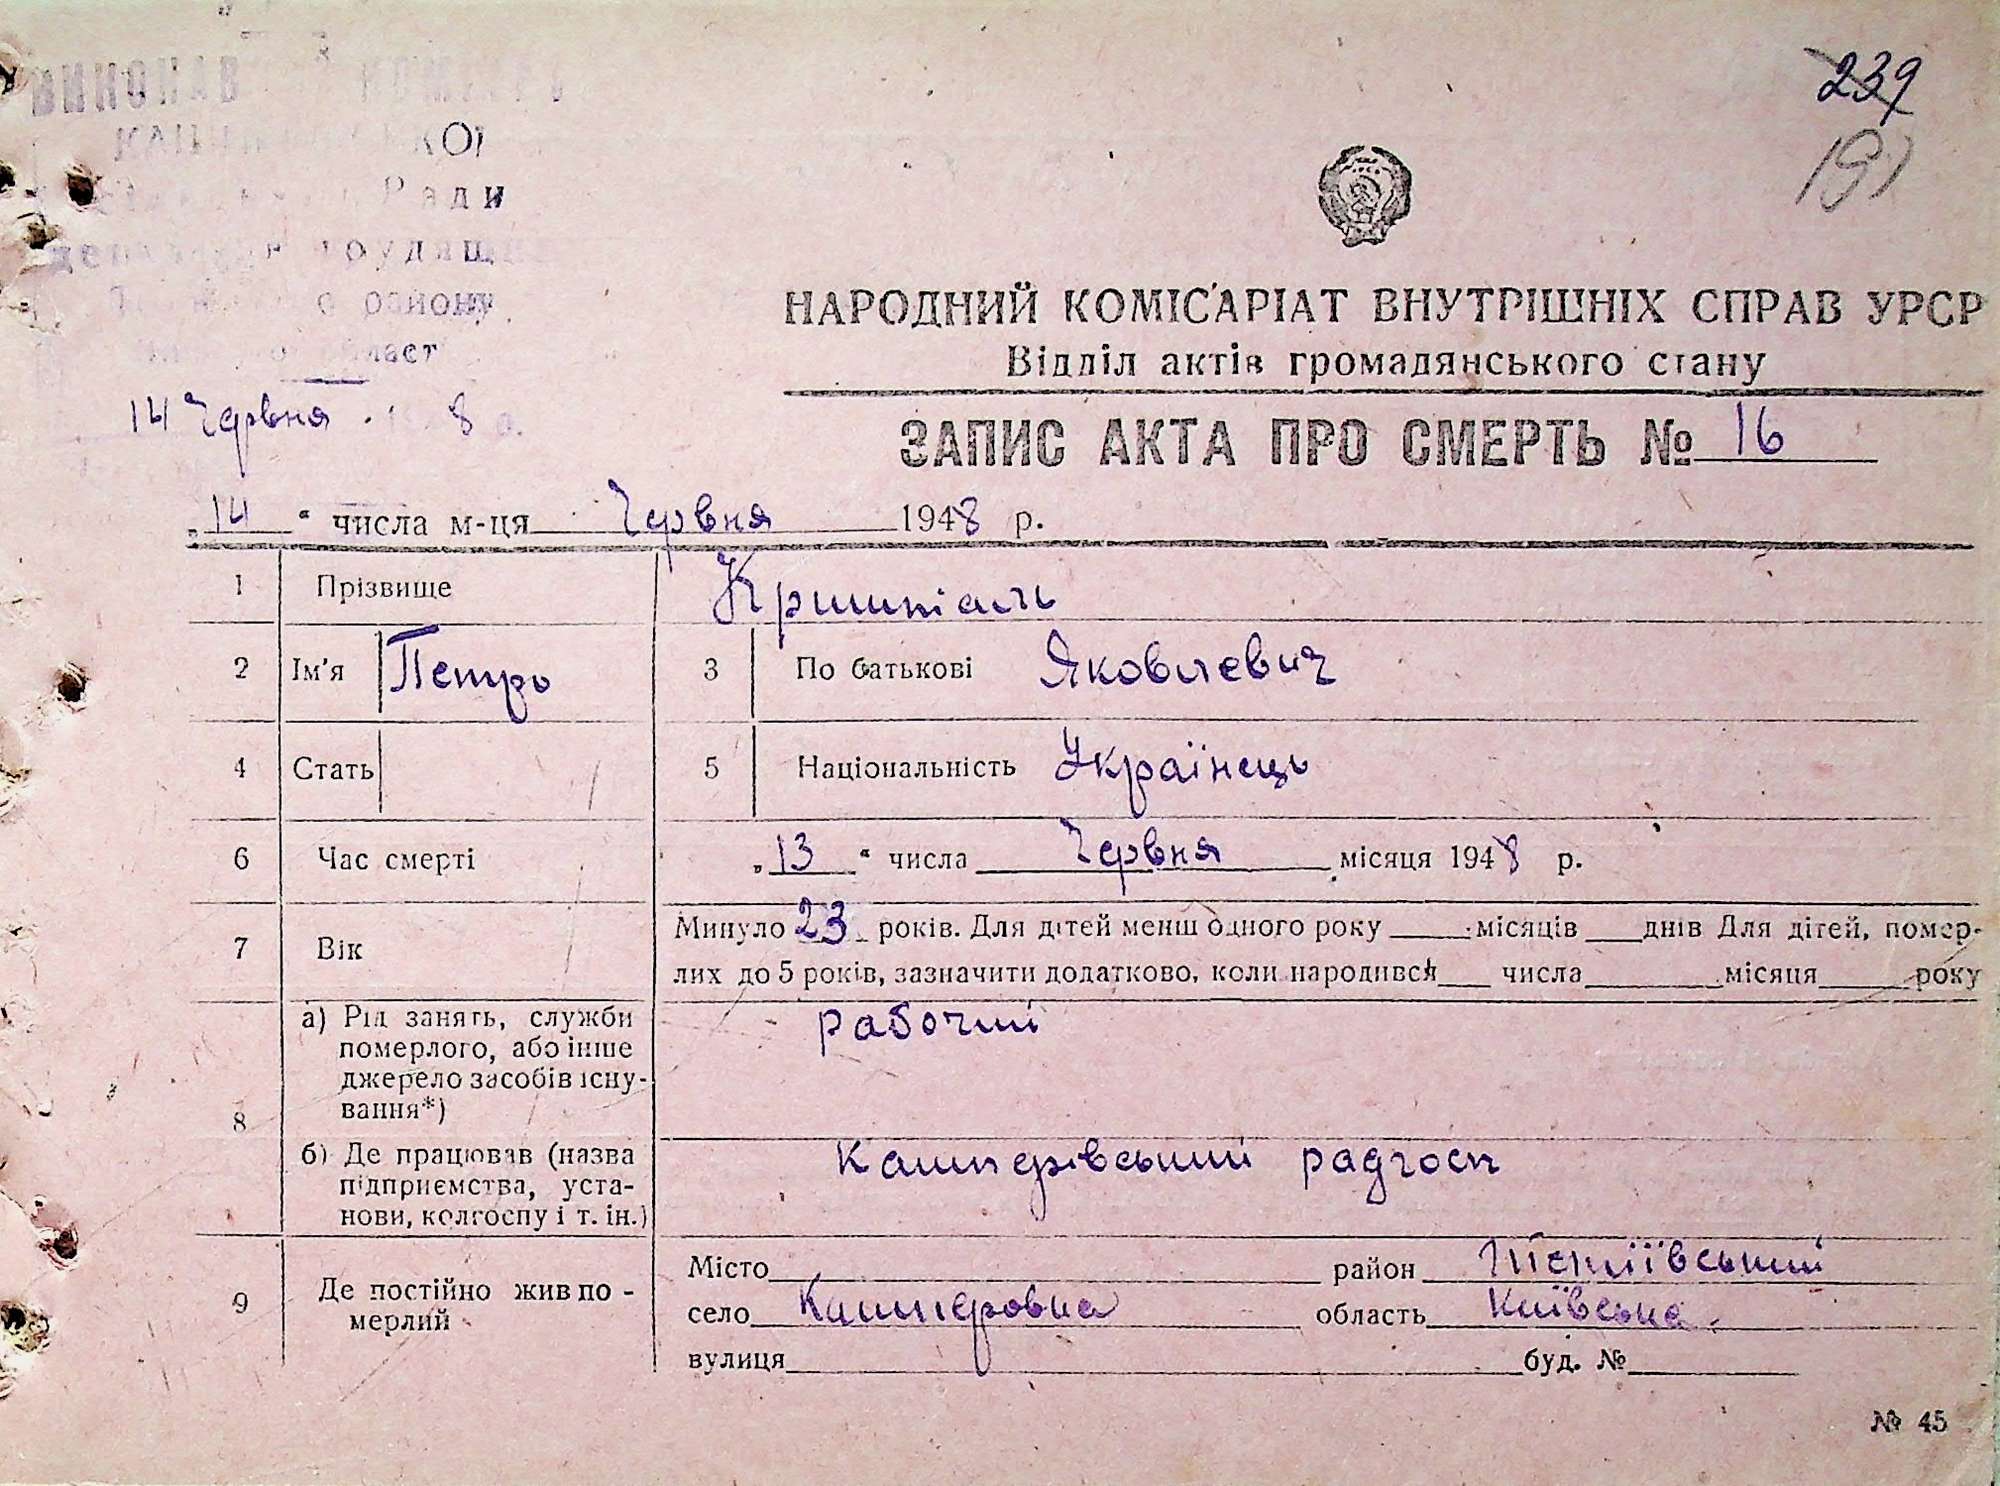 239
КОЇ
Ради
району
14 Червня 8
НАРОДНИЙ КОМІСАРІАТ ВНУТРІШНІХ СПРАВ УРСР
Відділ актів громадянського стану
ЗАПИС АКТА ПРО СМЕРТЬ № 16
„14“ числа м-ця Червня 1948 р.
1 Прізвище Кришталь
2 Ім'я Петро 3 По батькові Яковлєвич
4 Стать 5 Національність Українець
6 Час смерті „13“ числа Червня місяця 1948 р.
7 Вік Минуло 23 років. Для дітей менш одного року місяців днів Для дітей, помер-
лих до 5 років, зазначити додатково, коли народився числа місяця року
8 а) Рід занять, служби рабочий
померлого, або інше
джерело засобів існу-
вання*)
б) Де працював (назва Кашперівський радгосп
підприємства, уста-
нови, колгоспу і т. ін.)
9 Де постійно жив по-
мерлий
Місто район Тетіївський
село Кашперовка область Київська.
вулиця буд. №
№ 45